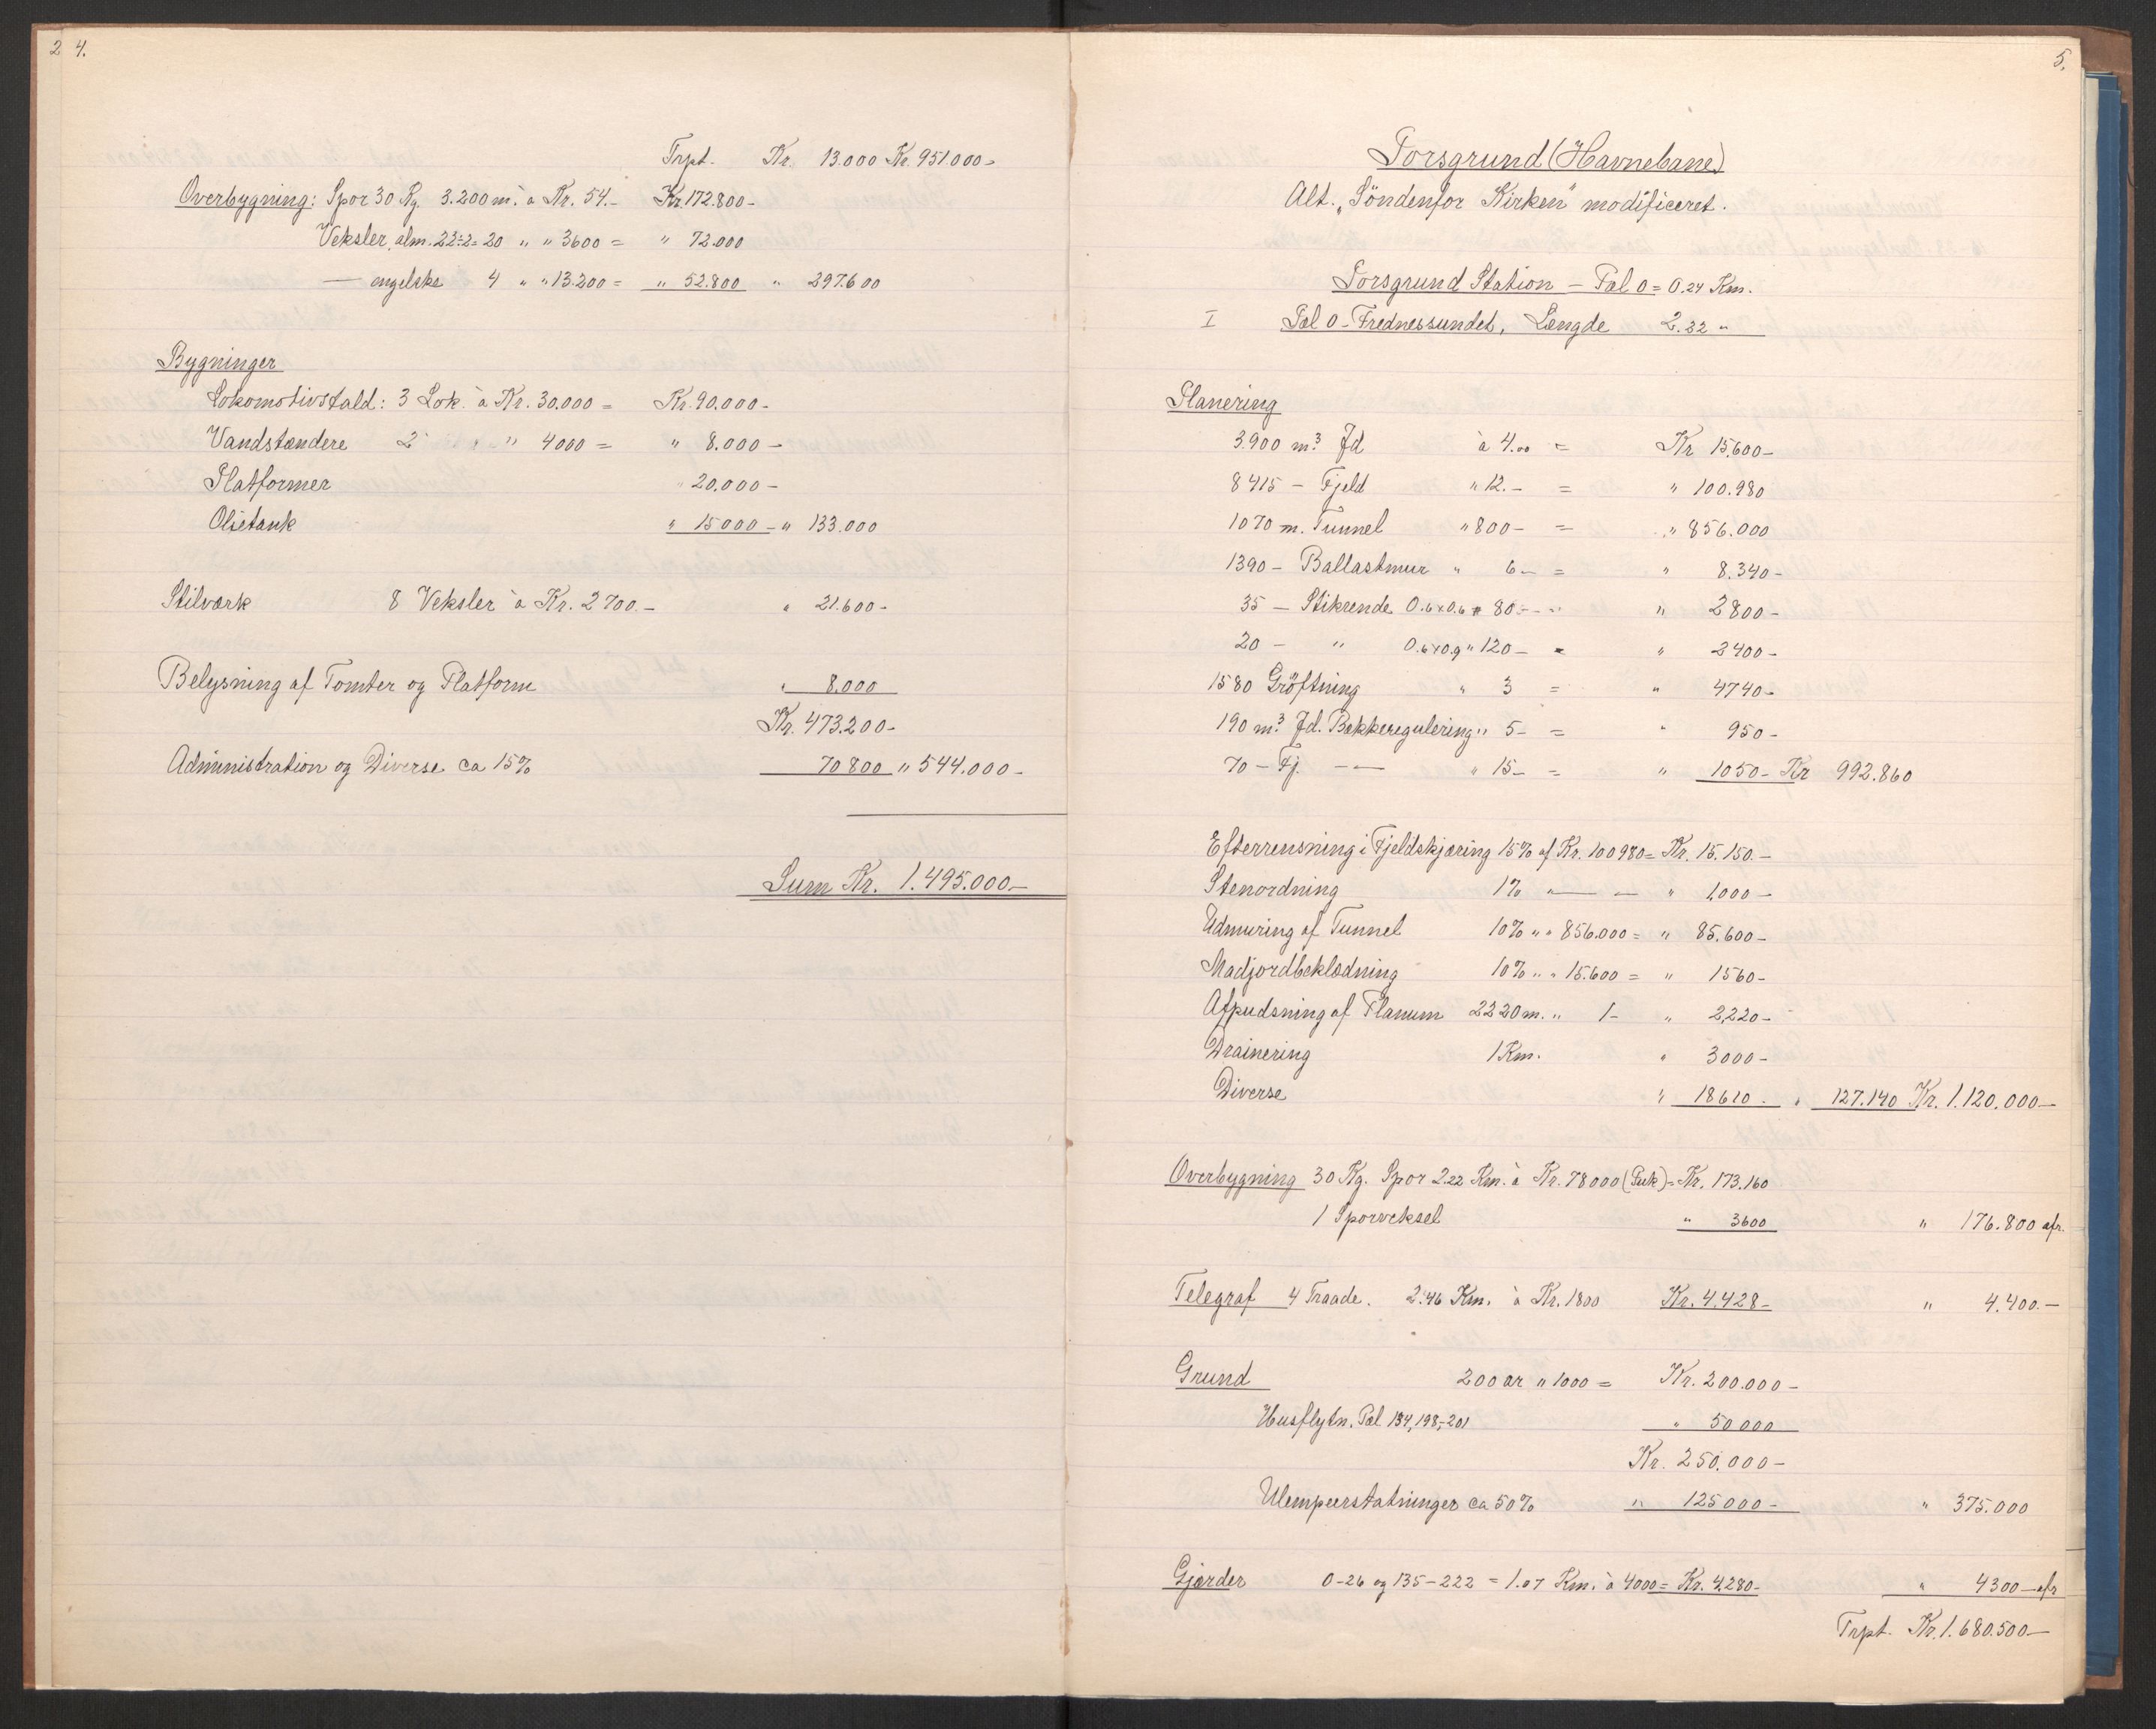 2 4.
Trpt. Kr. 13.000 Kr. 951.000-
Overbygning: Spor 30 Kg. 3.200 m. à Kr. 54.- Kr. 172.800-
Veksler, alm. 22÷2=20 " " 3600 = " 72.000
— engelske 4 " " 13.200 = " 52.800 " 297.600
Bygninger
Lokomotivstald: 3 Lok. à Kr. 30.000 = Kr. 90.000-
Vandstændere 2 " " 4000 = " 8.000-
Platformer " 20.000-
Olietank " 15000- " 133.000
Stilværk 8 Veksler à Kr. 2700.- " 21.600-
Belysning af Tomter og Platform " 8.000
Kr. 473.200-
Administration og Diverse ca 15% 70800 " 544.000-
Sum Kr. 1.495.000-
5.
Porsgrund (Havnebane)
Alt. „Söndenfor Kirken" modificeret.
Porsgrund Station - Pæl 0 = 0,24 Km.
I Pæl 0 - Frednessundet, Længde 2.22 "
Planering
3.900 m³ Jd à 4.00 = Kr 15.600-
8415 - Fjeld " 12.- = " 100.980
1070 m. Tunnel " 800- = " 856.000
1390 - Ballastmur " 6- = " 8.340-
35 - Stikrende 0.6x0.6 " 80.- - " 2800-
20 - " 0.6x0.9 " 120- = " 2400-
1580 Gröftning " 3 = " 4740-
190 m³ Jd. Bækkeregulering " 5- = " 950-
70 - Fj. -— " 15- = " 1050- Kr 992.860
Efterrensning i Fjeldskjæring 15% af Kr. 100980 = Kr. 15.150.-
Stenordning 1% " — — " 1.000-
Udmuring af Tunnel 10% " " 856.000 = " 85.600-
Madjordbeklædning 10% " " 15.600 = " 1560-
Afpudsning af Planum 2220 m. " 1- " 2.220-
Drainering 1 Km. " 3000-
Diverse " 18610- " 127.140 Kr. 1.120.000-
Overbygning 30 Kg. Spor 2.22 Km. à Kr. 78000 (Puk) = Kr. 173.160
1 Sporveksel " 3600 " 176.800 afr.
Telegraf 4 Traade. 2.46 Km. à Kr. 1800 Kr. 4.428- " 4.400.-
Grund 200 ar " 1000 = Kr. 200.000-
Husflytn. Pæl 134, 198,-201 " 50.000
Kr. 250.000-
Ulempeerstatninger ca 50% " 125000- " 375.000
Gjærder 0-26 og 135-222 = 1.07 Km. à 4000 = Kr. 4.280- " 4300- afr
Trpt. Kr. 1.680.500-